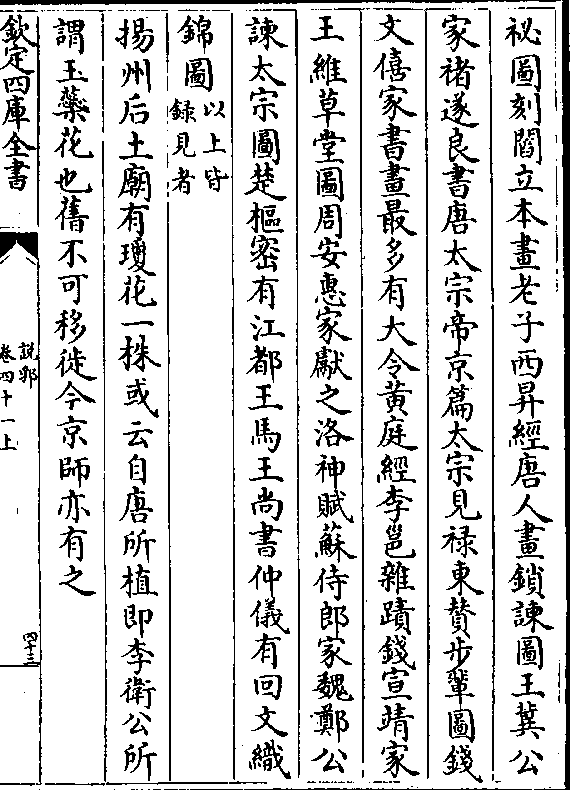 祕圖刻閻立本畫老子西昇經唐人畫鎖諫圖王冀公
家褚遂良書唐太宗帝京篇太宗見祿東贊步輦圖錢
文僖家書畫最多有大令黃庭經李邕雜蹟錢宣靖家
王維草堂圖周安惠家獻之洛神賦蘇侍郎家魏鄭公
諫太宗圖楚樞密有江都王馬王尚書仲儀有回文織
錦圖以上皆
録見者
揚州后土廟有瓊花一株或云自唐所植即李衛公所
謂玉蘂花也舊不可移徙今京師亦有之
欽定四庫全書
說郛
卷四十一上
四十三